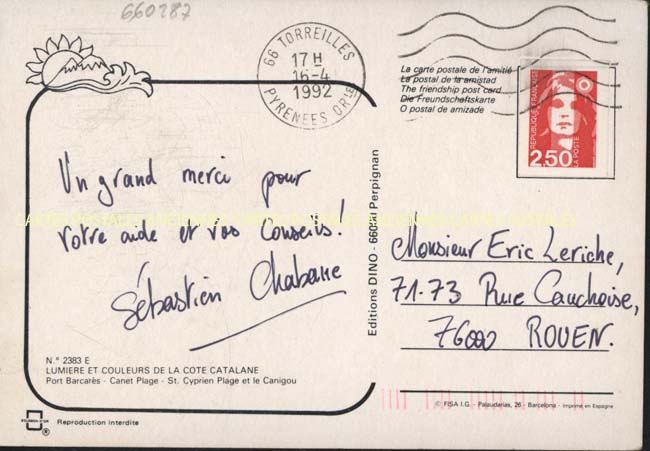 660287
66 TORREILLES
17 H
16-4
1992
PYRENEES ORles
La carte postale de l'amitié
La postal de la amistad
The friendship post card
Die Freundschaftskarte
O postal de amizade
REPUBLIQUE FRANÇAISE
2,50
LA POSTE
Un grand merci pour
votre aide et vos Conseils!
Sébastien Chabanne
Editions DINO - 66020 Perpignan
Monsieur Eric Leriche,
71-73 Rue Cauchoise,
76000 ROUEN.
N.° 2383 E
LUMIERE ET COULEURS DE LA COTE CATALANE
Port Barcarès - Canet Plage - St. Cyprien Plage et le Canigou
Reproduction interdite
© FISA I.G. - Palaudarias, 26 - Barcelona - Imprimé en Espagne